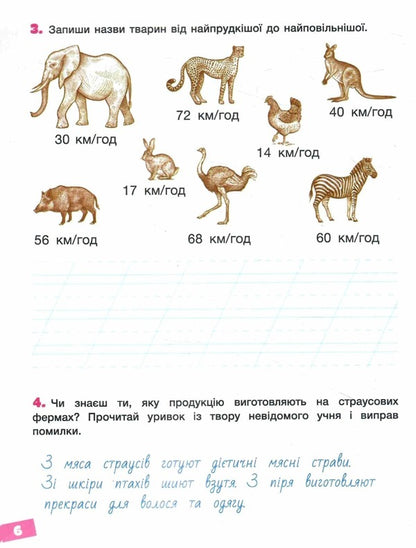 3. Запиши назви тварин від найпрудкішої до найповільнішої.
72 км/год
40 км/год
30 км/год
14 км/год
17 км/год
56 км/год
68 км/год
60 км/год
4. Чи знаєш ти, яку продукцію виготовляють на страусових
фермах? Прочитай уривок із твору невідомого учня і виправ
помилки.
З мяса страусів готуют дієтичні мясні страви.
Зі шкіри птахів шиют взутя. З піря виготовляют
прекраси для волося та одягу.
6